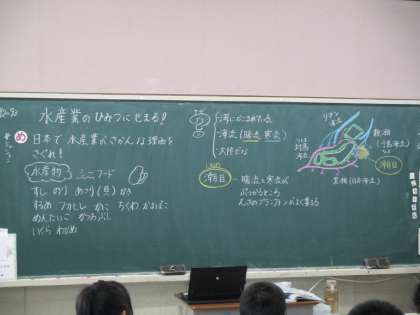 水産業のひみつにせまる!
め 日本で水産業がさかんな理由を
さぐれ!
水産物 ミニフード
すし のり あさり(貝) かき
するめ フカヒレ かに ちくわ かまぼこ
めんたいこ かつおぶし
いくら わかめ
海にかこまれている
海流(暖流 寒流)
大陸だな
潮目 → 暖流と寒流が
ぶつかるところ
えさのプランクトンがよく集まる
リマン
海流
対馬
海流
親潮
(千島海流)
潮目
黒潮(日本海流)